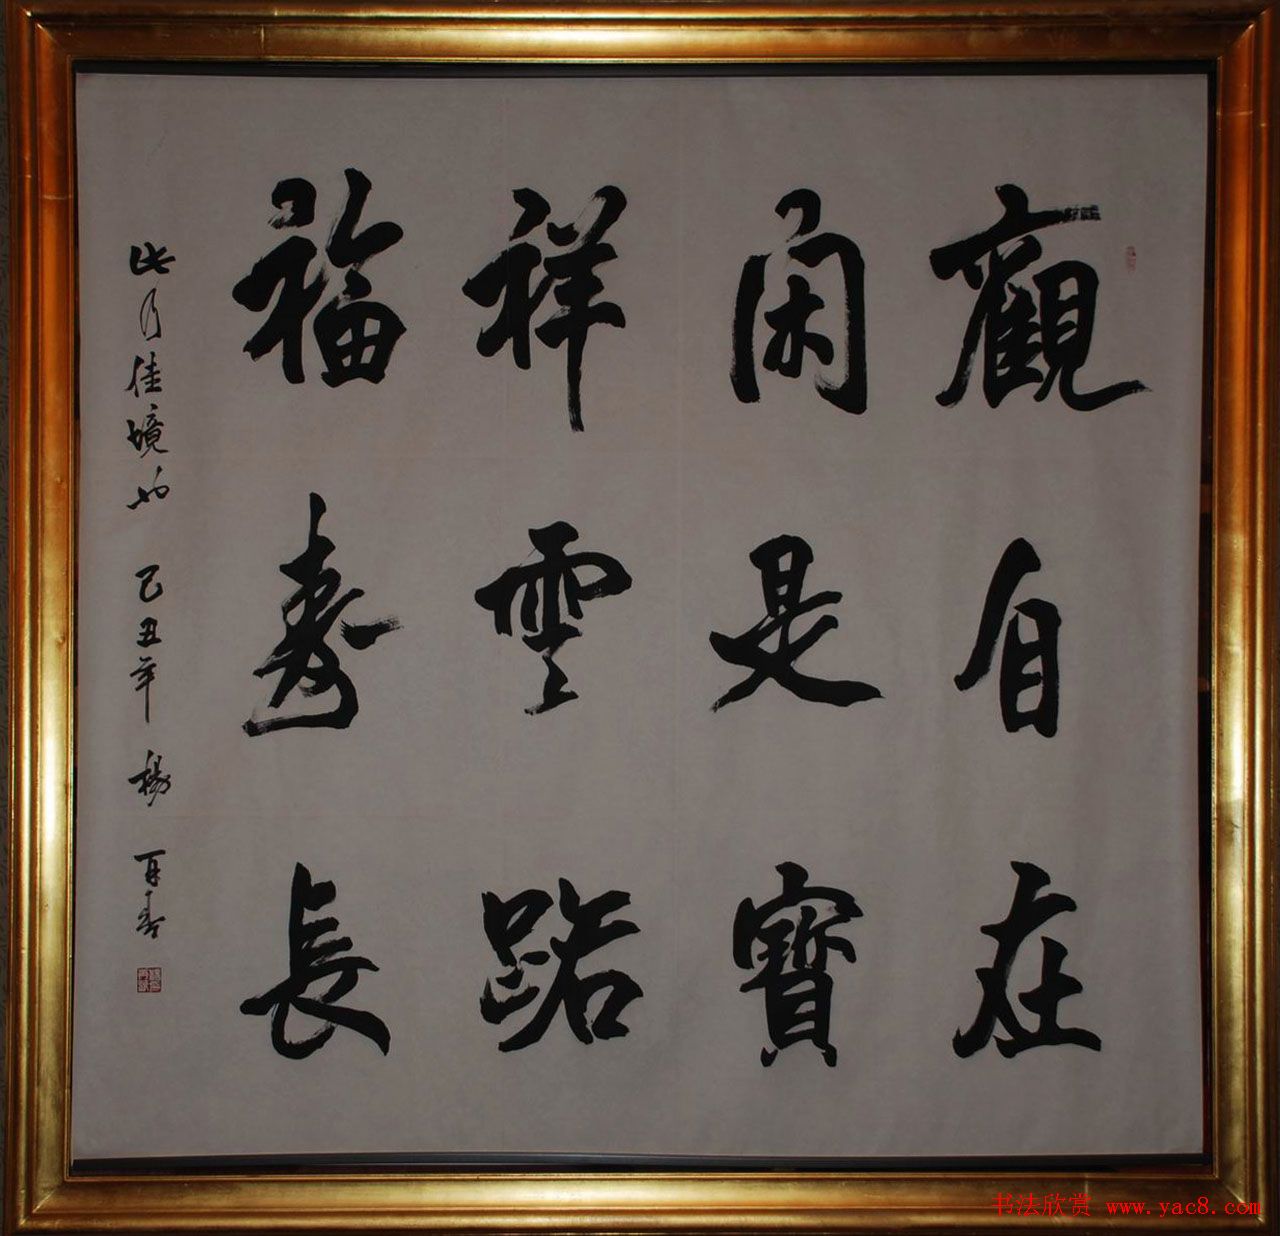 觀自在
閑是寶
祥雲路
福壽長
此乃佳境也 己丑年 楊再春
书法欣赏 www.yac8.com